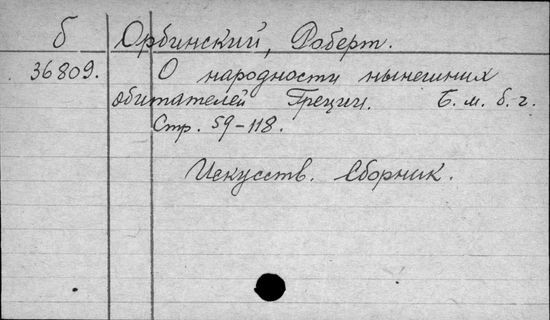 б Орбинский, Роберт.
36809. О народности нынешних
обитателей Греции. Б. м. б. г.
Стр. 59-118.
Искусств. Сборник.